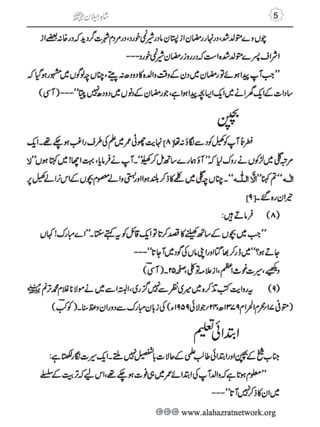 شاہِ جیلان ﷺ 5
چوں وے متولد شد، در رمضان از پستان مادر شیر نمی خورد، در مردم شہرت گرد ید کہ در خانۂ بعضے از
اشراف پسرے متولد شدہ است کہ در روز رمضان شیر نمی خورد---
’’جب آپ پیدا ہوئے تو رمضان میں دن کے وقت والدہ کا دودھ نہ پیتے، چناں چہ لوگوں میں مشہور ہو گیا کہ
سادات کے ایک گھرانے میں ایک ایسا بچہ پیدا ہوا ہے، جو رمضان کے دنوں میں دودھ نہیں پیتا‘‘--- (آسی)
بچپن
فطرتاً آپ کو کھیل کود سے لگاؤ نہ تھا [۸] نہایت چھوٹی عمر میں علم کی طرف راغب ہو چکے تھے۔ ایک
مرتبہ گلی میں لڑکوں نے روک لیا کہ ’’آؤ ہمارے ساتھ مل کر کھیلو‘‘۔ آپ نے فرمایا، بہت اچھا! میں کہتا ہوں ’’لا
الٰہ‘‘ تم کہنا ’’الا اللہ‘‘۔ چناں چہ گلی میں کلمے کا ذکر بلند ہوا اور بستی والے معصوم بچوں کے اس نرالے کھیل پر
حیران رہ گئے۔ [۹]
(۸) فرماتے ہیں:
’’جب میں بچوں کے ساتھ کھیلنے کا قصد کرتا تو ایک قائل کو یہ کہتے سنتا۔ ’’اے مبارک! کہاں
جاتے ہو؟‘‘ میں ڈر کر بھاگتا اور اپنی ماں کی گود میں آ جاتا‘‘---
دیکھیے، سیرت غوث اعظم، از علامہ توکلی، صفحہ ۲۵۔ (آسی)
(۹) یہ روایت کتب تذکرہ میں میری نظر سے نہیں گزری، البتہ اسے میں نے مولانا غلام محمد ترنم
(متوفی ۱۷؍محرم الحرام ۱۳۷۹ھ/۲۴؍جولائی ۱۹۵۹ء) کی زبان مبارک سے دوران وعظ سنا۔ (کوکب)
ابتدائی تعلیم
جناب شیخ کے بچپن اور ابتدائی طالب علمی کے حالات بالتفصیل نہیں ملتے۔ ایک سیرت نگار لکھتا ہے:
’’معلوم ہوتا ہے کہ والد آپ کی ابتدائے عمر میں ہی فوت ہو چکے تھے، اس لیے کہ تربیت کے سلسلے
میں ان کا ذکر نہیں آتا‘‘---
www.alahazratnetwork.org